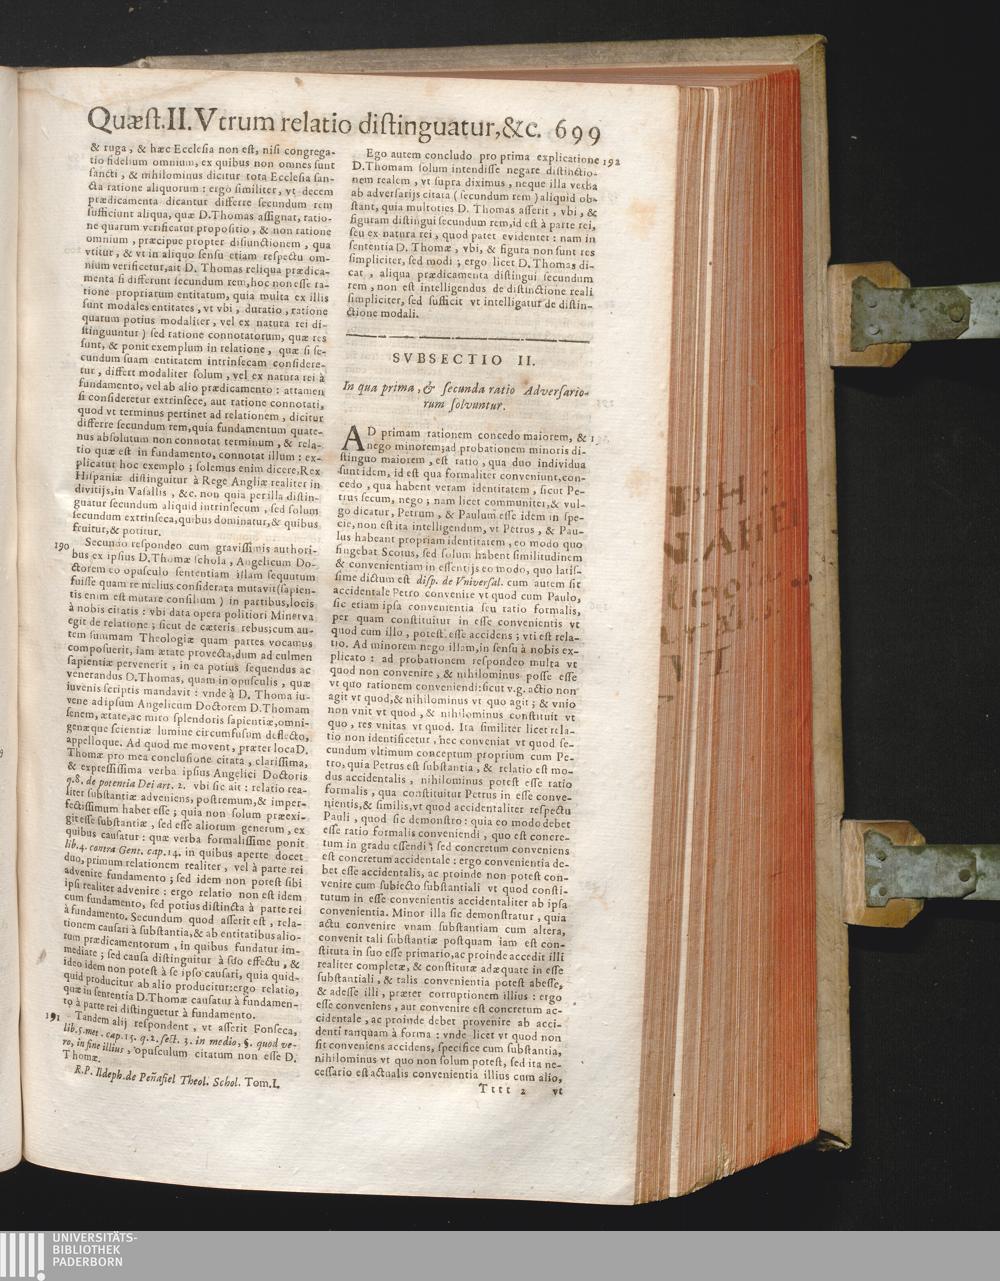 Quæſt.II. Vtrum relatio diſtinguatur,&c. 699
& ruga, & hæc Eccleſia non eſt, niſi congrega-
tio fidelium omnium, ex quibus non omnes ſunt
ſancti, & nihilominus dicitur tota Eccleſia ſan-
cta ratione aliquorum: ergo ſimiliter, vt decem
prædicamenta dicantur differre ſecundum rem
ſufficiunt aliqua, quæ D.Thomas aſſignat, ratio-
ne quarum verificatur propoſitio, & non ratione
omnium, præcipue propter diſiunctionem, qua
vtitur, & vt in aliquo ſenſu etiam reſpectu om-
nium verificetur,ait D. Thomas reliqua prædica-
menta ſi differunt ſecundum rem,hoc non eſſe ra-
tione propriarum entitatum, quia multa ex illis
ſunt modales entitates, vt vbi, duratio, ratione
quarum potius modaliter, vel ex natura rei di-
ſtinguuntur) ſed ratione connotatorum, quæ res
ſunt, & ponit exemplum in relatione, quæ ſi ſe-
cundum ſuam entitatem intrinſecam conſidere-
tur, differt modaliter ſolum, vel ex natura rei à
fundamento, vel ab alio prædicamento: attamen
ſi conſideretur extrinſece, aut ratione connotati,
quod vt terminus pertinet ad relationem, dicitur
differre ſecundum rem,quia fundamentum quate-
nus abſolutum non connotat terminum, & rela-
tio quæ eſt in fundamento, connotat illum: ex-
plicatur hoc exemplo; ſolemus enim dicere,Rex
Hiſpaniæ diſtinguitur à Rege Angliæ realiter in
divitijs,in Vaſallis, &c. non quia per illa diſtin-
guatur ſecundum aliquid intrinſecum, ſed ſolum
ſecundum extrinſeca,quibus dominatur,& quibus
fruitur,& potitur.
190 Secundo reſpondeo cum graviſſimis authori-
bus ex ipſius D.Thomæ ſchola, Angelicum Do-
ctorem eo opuſculo ſententiam iſlam ſequutum
fuiſſe quam re melius conſiderata mutavit(ſapien-
tis enim eſt mutare conſilium) in partibus,locis
à nobis citatis: vbi data opera politiori Minerva
egit de relatione; ſicut de cæteris rebus;cum au-
tem ſummam Theologiæ quam partes vocamus
compoſuerit, iam ætate provecta,dum ad culmen
ſapientiæ pervenerit, in ea potius ſequendus ac
venerandus D.Thomas, quam in opuſculis, quæ
iuvenis ſcriptis mandavit: vnde à D. Thoma iu-
vene ad ipſum Angelicum Doctorem D.Thomam
ſenem, ætate,ac miro ſplendoris ſapientiæ,omni-
genæque ſcientiæ lumine circumfuſum deflecto,
appelloque. Ad quod me movent, præter loca D.
Thomæ pro mea concluſione citata, clariſſima,
& expreſſiſſima verba ipſius Angelici Doctoris
q.8. de potentia Dei art. 2. vbi ſic ait: relatio rea-
liter ſubſtantiæ adveniens, poſtremum,& imper-
fectiſſimum habet eſſe; quia non ſolum præexi-
git eſſe ſubſtantiæ, ſed eſſe aliorum generum, ex
quibus cauſatur: quæ verba formaliſſime ponit
lib.4. contra Gent. cap.14. in quibus aperte docet
duo,primum relationem realiter, vel à parte rei
advenire fundamento; ſed idem non poteſt ſibi
ipſi realiter advenire: ergo relatio non eſt idem
cum fundamento, ſed potius diſtincta à parte rei
à fundamento. Secundum quod aſſerit eſt, rela-
tionem cauſari à ſubſtantia,& ab entitatibus alio-
rum prædicamentorum, in quibus fundatur im-
mediate; ſed cauſa diſtinguitur à ſuo effectu, &
ideo idem non poteſt à ſe ipſo cauſari, quia quid-
quid producitur ab alio producitur:ergo relatio,
quæ in ſententia D.Thomæ cauſatur à fundamen-
to à parte rei diſtinguetur à fundamento.
191 Tandem alij reſpondent, vt aſſerit Fonſeca,
lib.5.met. cap.15. q.2. ſect. 3. in medio, §. quod ve-
ro, in fine illius, opuſculum citatum non eſſe D.
Thomæ.
R.P. Ildeph.de Peñafiel Theol. Schol. Tom.I.
Ego autem concludo pro prima explicatione 192
D.Thomam ſolum intendiſſe negare diſtinctio-
nem realem, vt ſupra diximus, neque illa verba
ab adverſarijs citata (ſecundum rem) aliquid ob-
ſtant, quia multoties D. Thomas aſſerit, vbi, &
figuram diſtingui ſecundum rem,id eſt à parte rei,
ſeu ex natura rei, quod patet evidenter: nam in
ſententia D. Thomæ, vbi, & figura non ſunt res
ſimpliciter, ſed modi; ergo licet D.Thomas di-
cat, aliqua prædicamenta diſtingui ſecundum
rem, non eſt intelligendus de diſtinctione reali
ſimpliciter, ſed ſufficit vt intelligatur de diſtin-
ctione modali.
SVBSECTIO II.
In qua prima, & ſecunda ratio Adverſario-
rum ſolvuntur.
AD primam rationem concedo maiorem, &
nego minorem;ad probationem minoris di-
ſtinguo maiorem, eſt ratio, qua duo individua
ſunt idem, id eſt qua formaliter conveniunt,con-
cedo, qua habent veram identitatem, ſicut Pe-
trus ſecum, nego; nam licet communiter,& vul-
go dicatur, Petrum, & Paulum eſſe idem in ſpe-
cie, non eſt ita intelligendum, vt Petrus, & Pau-
lus habeant propriam identitatem, eo modo quo
fingebat Scotus, ſed ſolum habent ſimilitudinem
& convenientiam in eſſentijs eo modo, quo latiſ-
ſime dictum eſt diſp. de Vniverſal. cum autem ſit
accidentale Petro convenire vt quod cum Paulo,
ſic etiam ipſa convenientia ſeu ratio formalis,
per quam conſtituitur in eſſe convenientis vt
quod cum illo, poteſt eſſe accidens; vti eſt rela-
tio. Ad minorem nego illam,in ſenſu à nobis ex-
plicato: ad probationem reſpondeo multa vt
quod non convenire, & nihilominus poſſe eſſe
vt quo rationem conveniendi:ſicut v.g. actio non
agit vt quod,& nihilominus vt quo agit; & vnio
non vnit vt quod, & nihilominus conſtituit vt
quo, res vnitas vt quod. Ita ſimiliter licet rela-
tio non identificetur, nec conveniat vt quod ſe-
cundum vltimum conceptum proprium cum Pe-
tro, quia Petrus eſt ſubſtantia, & relatio eſt mo-
dus accidentalis, nihilominus poteſt eſſe ratio
formalis, qua conſtituitur Petrus in eſſe conve-
nientis,& ſimilis,vt quod accidentaliter reſpectu
Pauli, quod ſic demonſtro: quia eo modo debet
eſſe ratio formalis conveniendi, quo eſt concre-
tum in gradu eſſendi; ſed concretum conveniens
eſt concretum accidentale: ergo convenientia de-
bet eſſe accidentalis, ac proinde non poteſt con-
venire cum ſubiecto ſubſtantiali vt quod conſti-
tutum in eſſe convenientis accidentaliter ab ipſa
convenientia. Minor illa ſic demonſtratur, quia
actu convenire vnam ſubſtantiam cum altera,
convenit tali ſubſtantiæ poſtquam iam eſt con-
ſtituta in ſuo eſſe primario,ac proinde accedit illi
realiter completæ, & conſtitutæ adæquate in eſſe
ſubſtantiali, & talis convenientia poteſt abeſſe,
& adeſſe illi, præter corruptionem illius: ergo
eſſe conveniens, aut convenire eſt concretum ac-
cidentale, ac proinde debet provenire ab acci-
denti tanquam à forma: vnde licet vt quod non
ſit conveniens accidens, ſpecifice cum ſubſtantia,
nihilominus vt quo non ſolum poteſt, ſed ita ne-
ceſſario eſt actualis convenientia illius cum alio,
Tttt 2 vt
UNIVERSITÄTS-
BIBLIOTHEK
PADERBORN